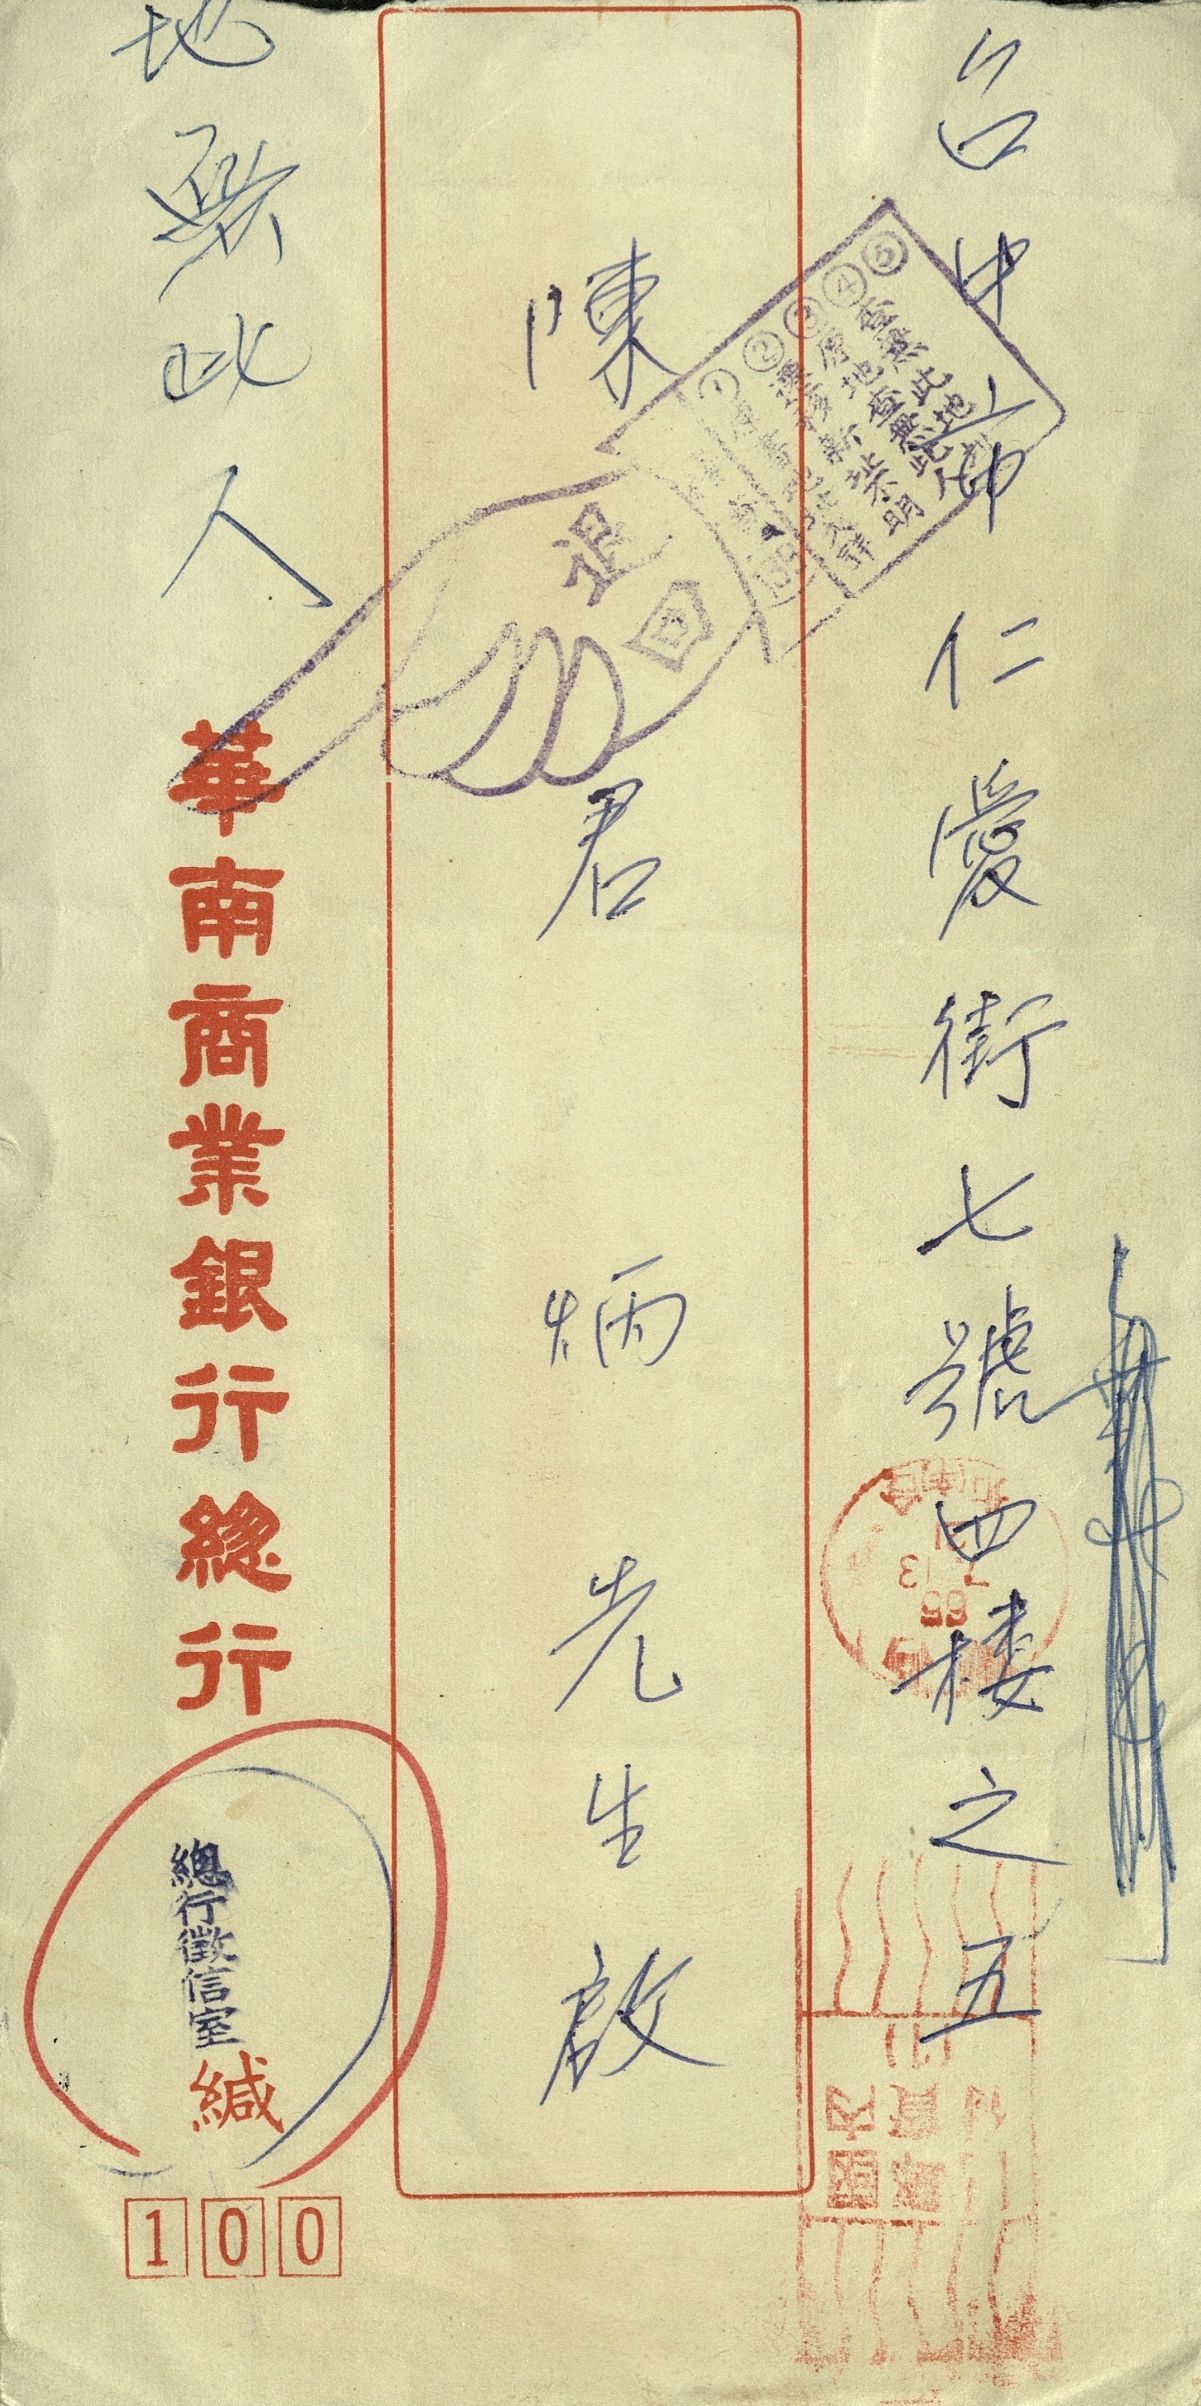 台中市仁愛街七號四楼之五
陳君炳先生啟
地無此人
華南商業銀行總行
總行徵信室
緘
100
退回
①
②遷移新址不明
③原地查無此人
④查無此地址
⑤
國內
郵資